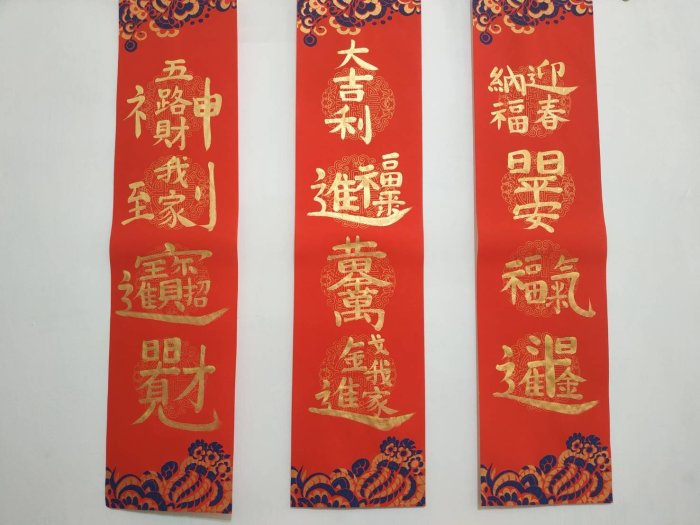 五路財神
到我家
招財進寶
日日見財
大吉利
進福來
黃金萬兩
金錢進我家
迎春納福
日日平安
福氣
日日進金